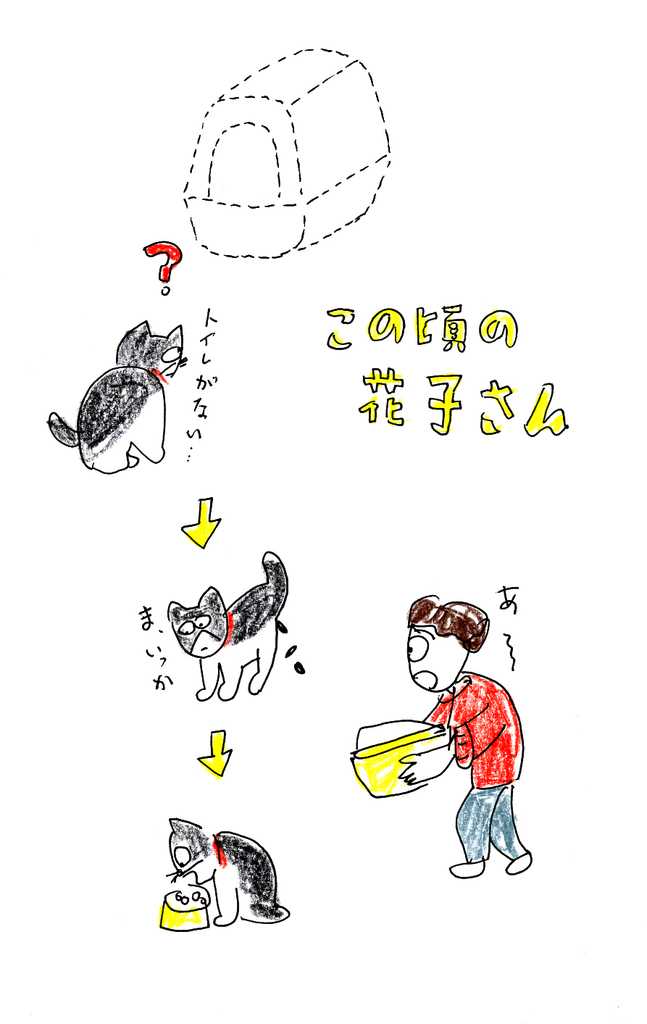 ?
トイレがない…
この頃の
花子さん
ま、いっか
あ～